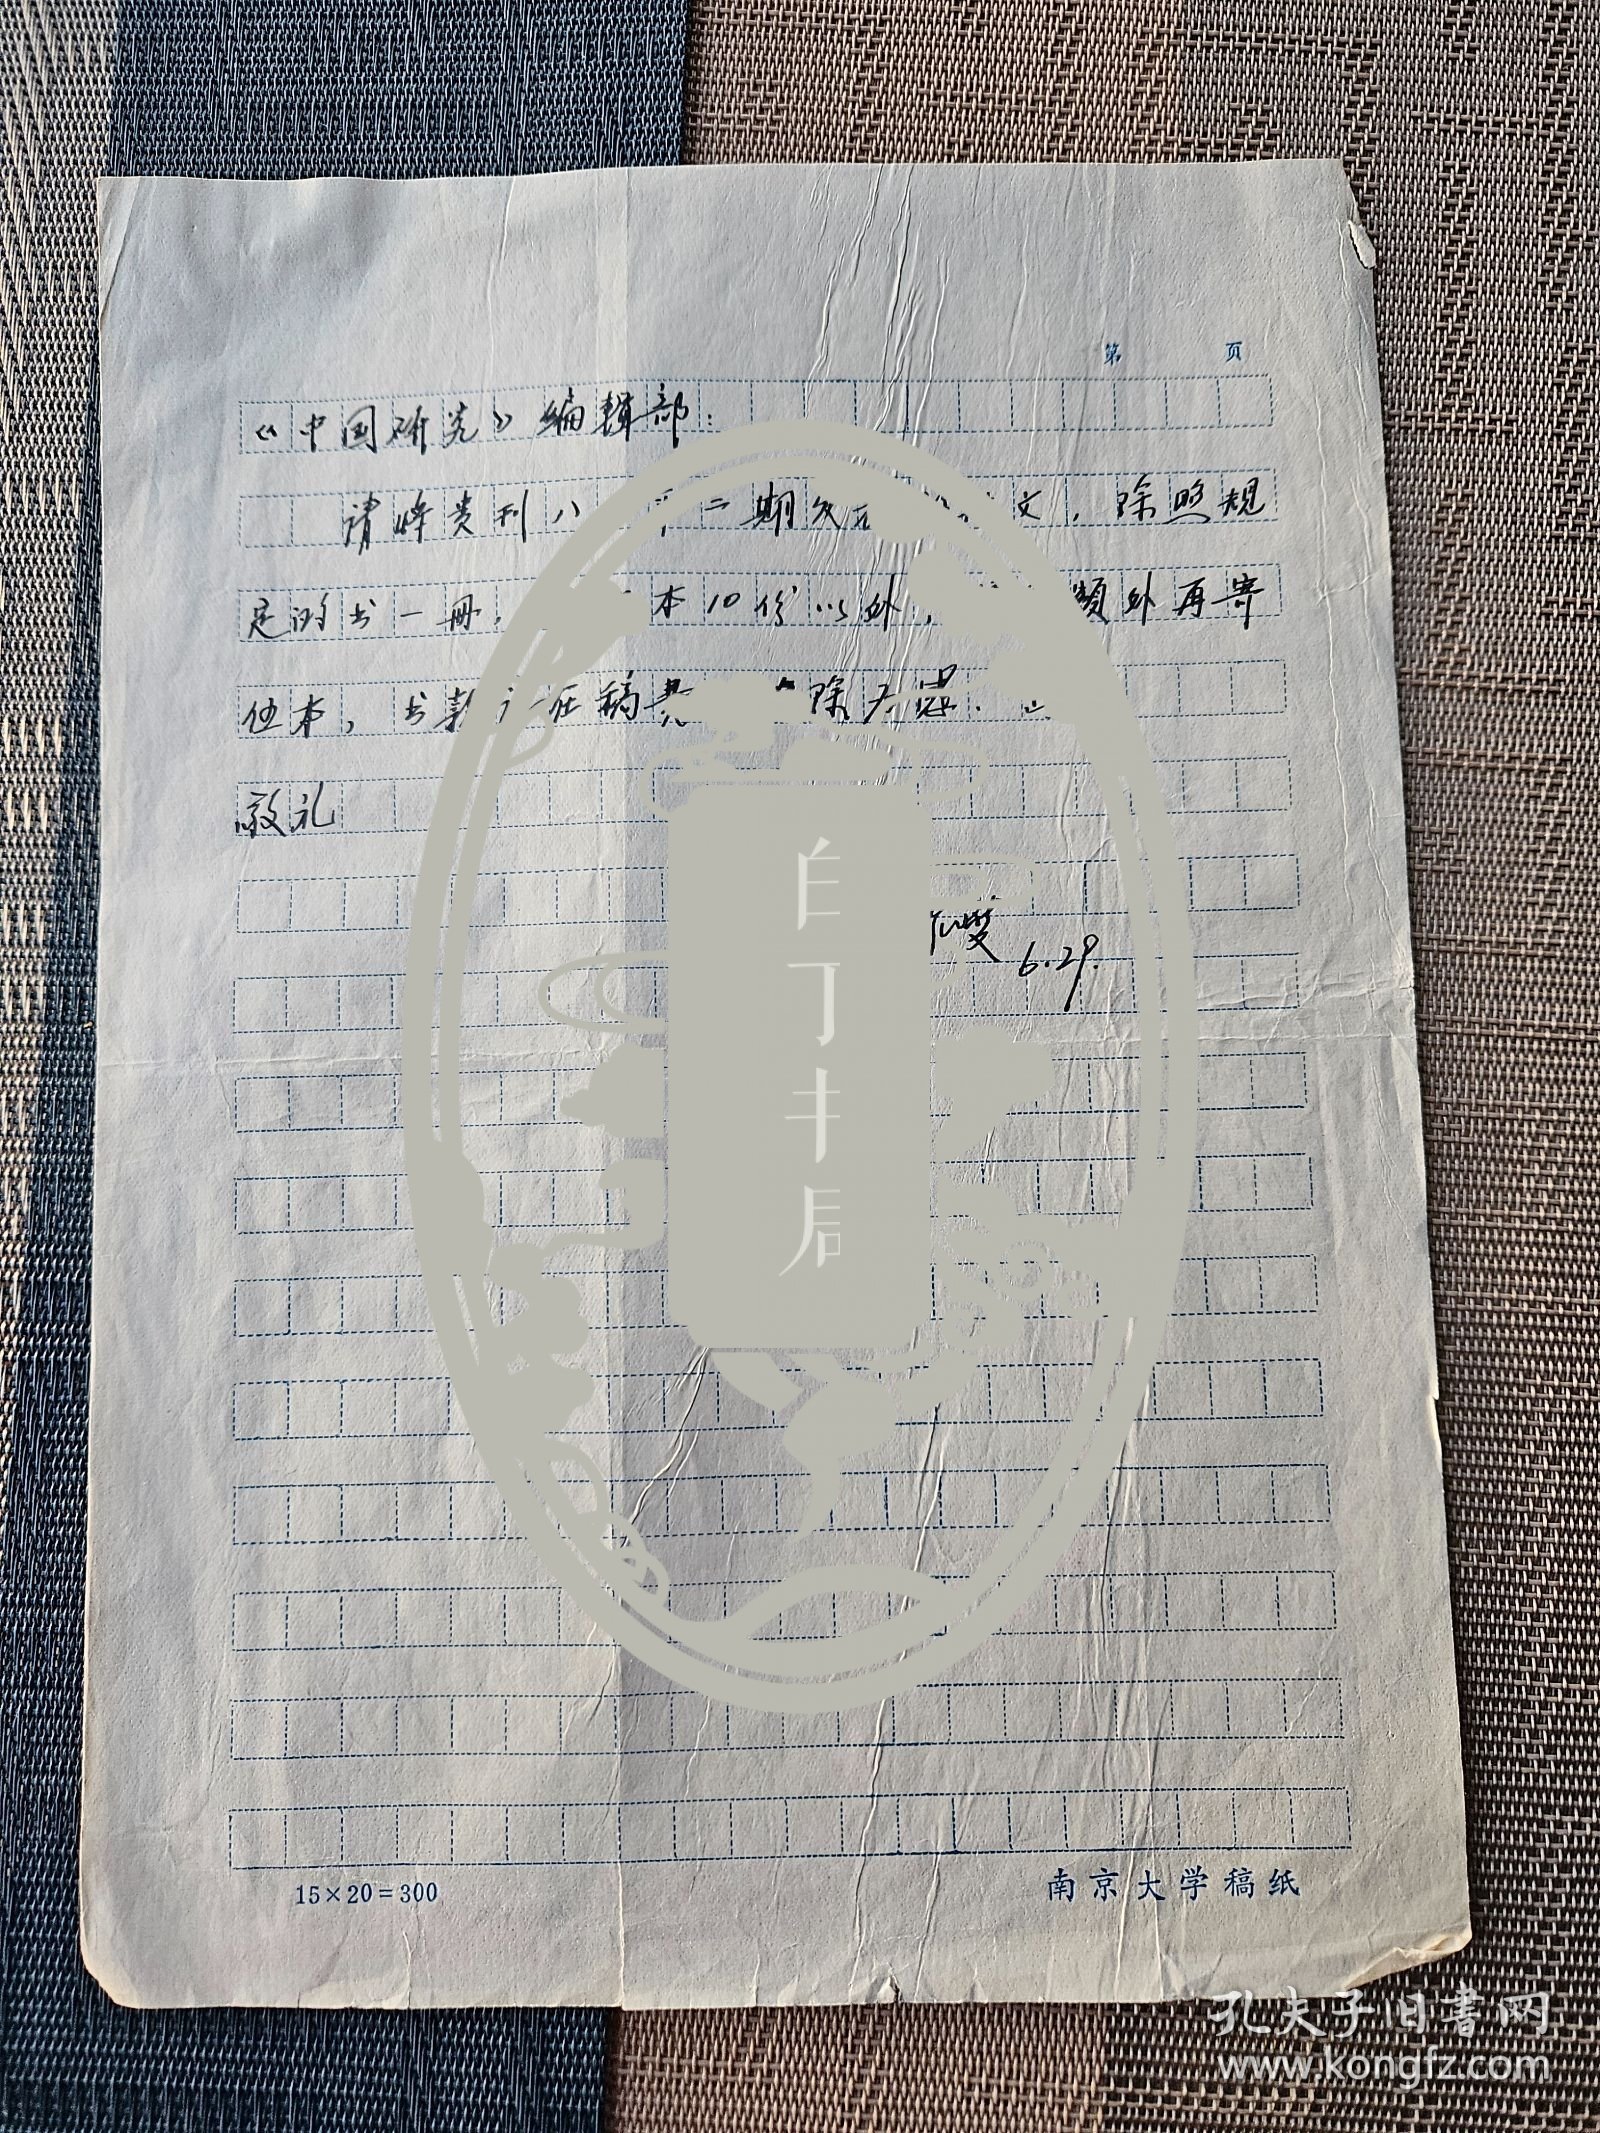 第 页
《中国研究》编辑部：
请将贵刊八 二期 文，除照规
定的书一册， 本10份以外， 额外再寄
伍本，书款 在稿费 除为盼．
敬礼
6.29.
白丁丰居
15×20=300
南京大学稿纸
孔夫子旧书网
www.kongfz.com